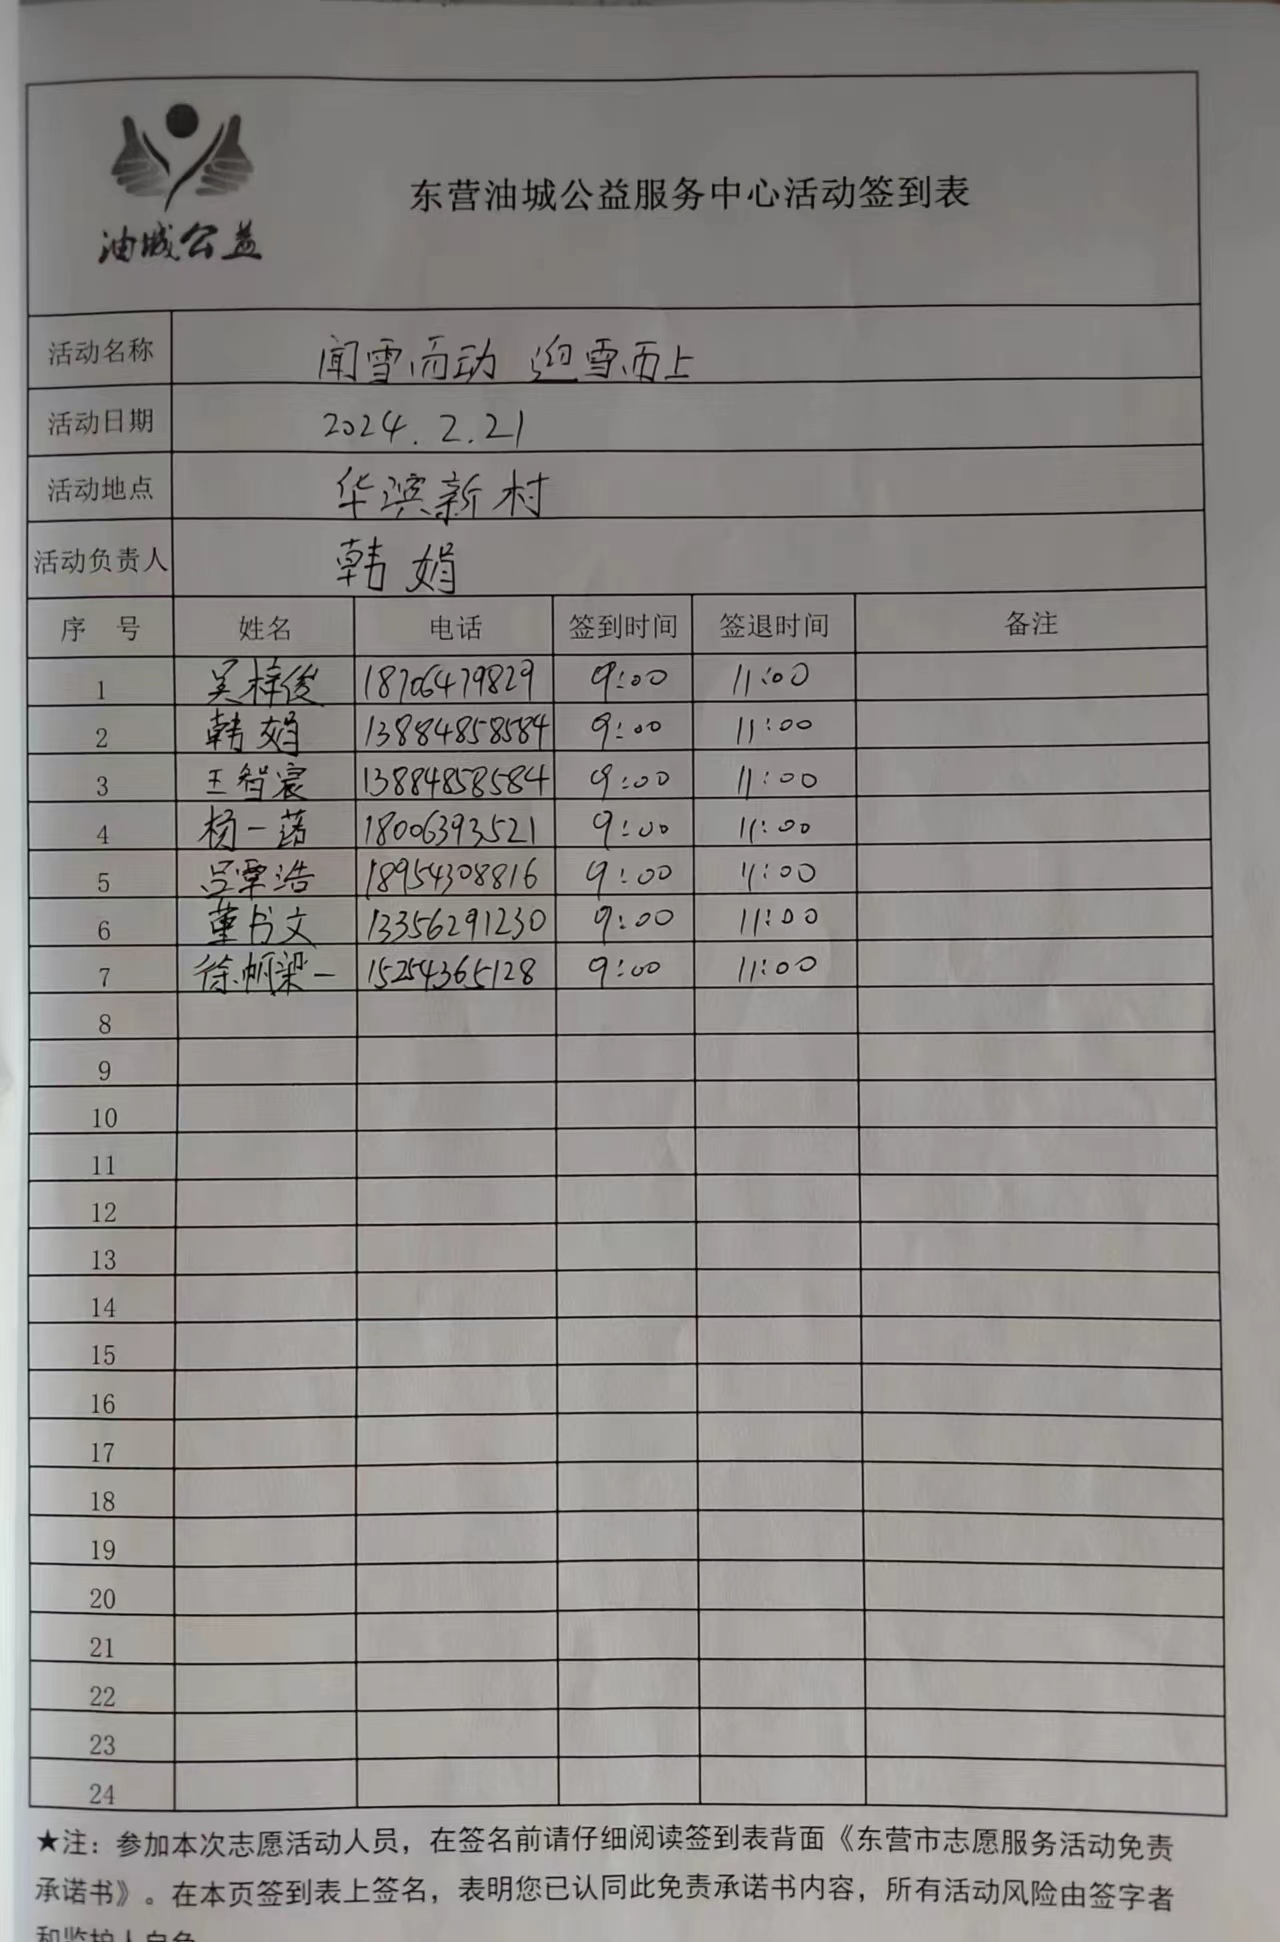 油城公益
东营油城公益服务中心活动签到表
活动名称 闻雪而动 迎雪而上
活动日期 2024.2.21
活动地点 华滨新村
活动负责人 韩娟
序 号 姓名 电话 签到时间 签退时间 备注
1 吴梓俊 18706479829 9:00 11:00
2 韩娟 13884858584 9:00 11:00
3 王智宸 13884858584 9:00 11:00
4 杨一 18006393521 9:00 11:00
5 吕覃浩 18954308816 9:00 11:00
6 董书文 13356291230 9:00 11:00
7 徐帆梁一 15254365128 9:00 11:00
8
9
10
11
12
13
14
15
16
17
18
19
20
21
22
23
24
★注：参加本次志愿活动人员，在签名前请仔细阅读签到表背面《东营市志愿服务活动免责
承诺书》。在本页签到表上签名，表明您已认同此免责承诺书内容，所有活动风险由签字者
和监护人自负